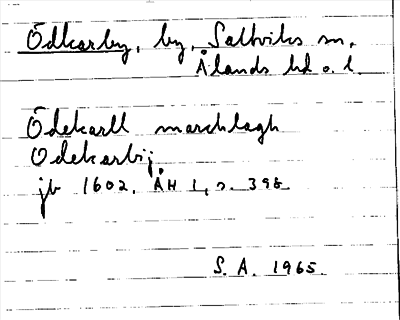 Ödkarby, by, Saltviks sn,
Ålands hd o. l.
Ödekarll marchlagh
Odekarbij
jb 1602, ÅH 1, s. 398
S. A. 1965